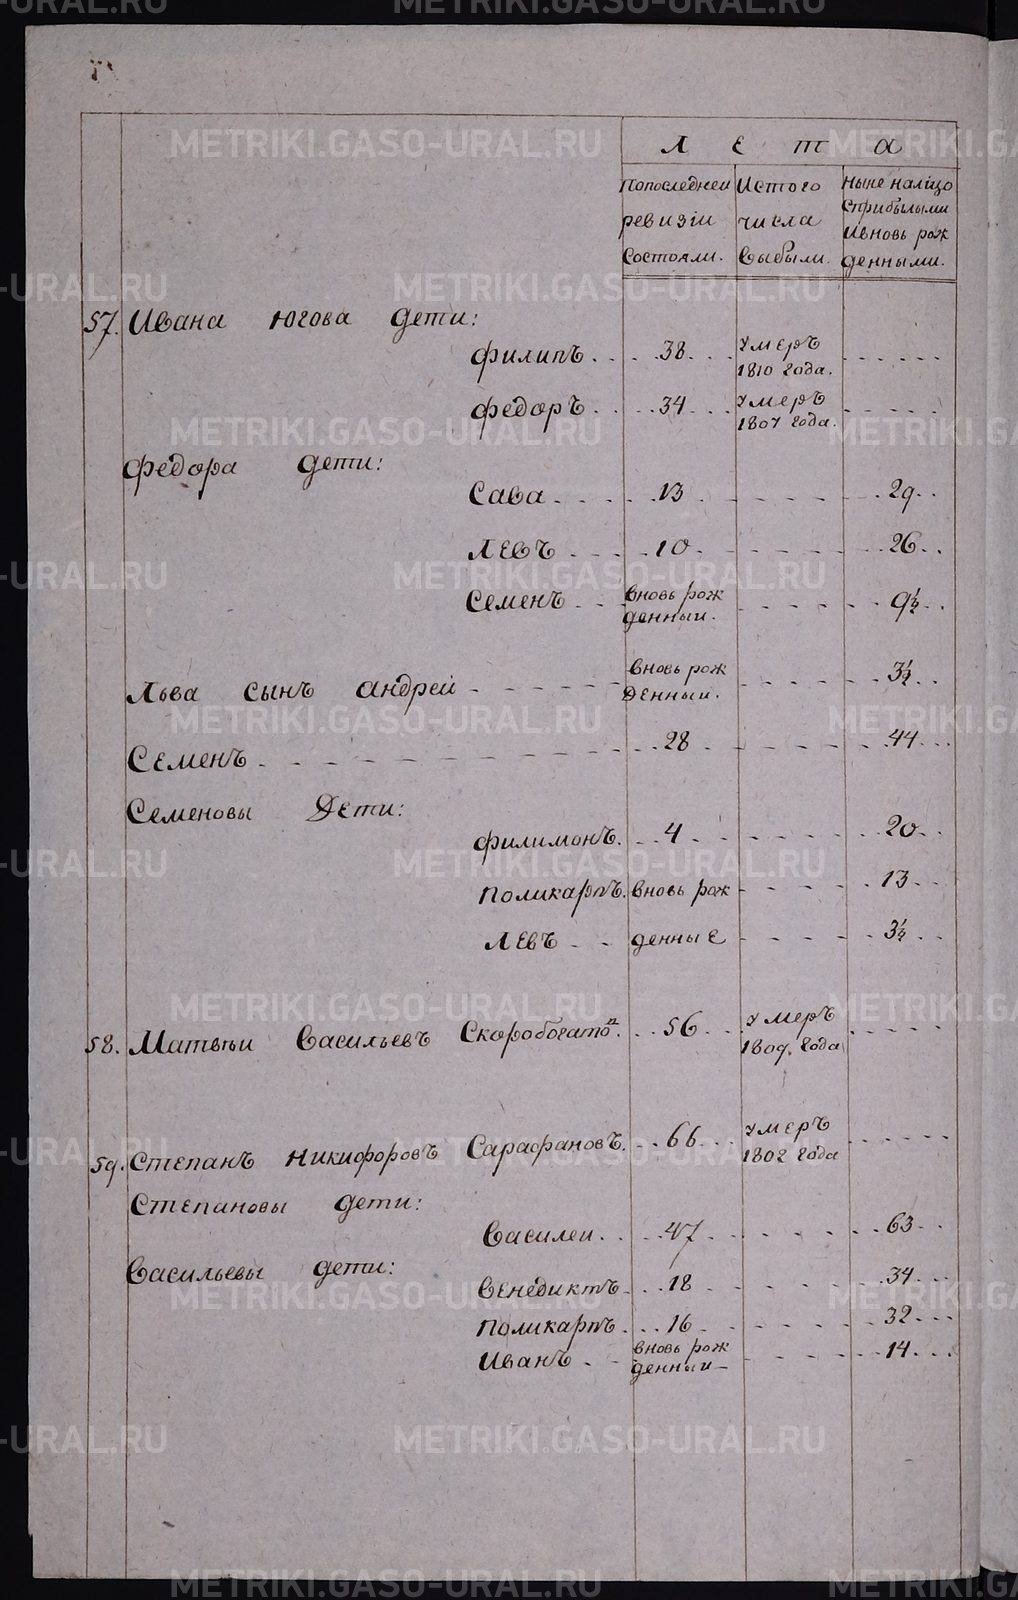 METRIKI.GASO-URAL.RU
Лета
По последней ревизіи состояли.
Ис того числа выбыли.
Ныне налицо с прибылыми и вновь рожденными.
57. Ивана Югова дети:
Филипъ 38 Умеръ 1810 года.
Федоръ 34 Умеръ 1807 года.
Федора дети:
Сава 13 29
Левъ 10 26
Семенъ вновь рожденный. 9½
Льва сынъ Андрей вновь рожденный. 3½
Семенъ 28 44
Семеновы Дети:
Филимонъ. 4 20
Поликарпъ. вновь рож 13
Левъ денные 3½
58. Матвеи Васильевъ Скоробогатов. 56 Умеръ 1809. года
59. Степанъ Никифоровъ Сарафановъ. 66 Умеръ 1802 года
Степановы дети:
Василеи. 47 63
Васильевы дети:
Венедиктъ 18 34
Поликарпъ 16 32
Иванъ вновь рожденный 14